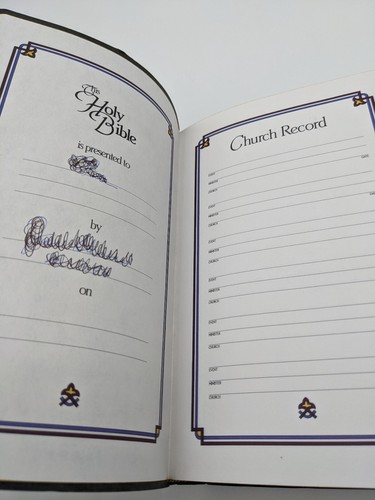 This
Holy
Bible
is presented to
by
on
Church Record
EVENT DATE
MINISTER
CHURCH
EVENT
MINISTER
CHURCH
EVENT
MINISTER
CHURCH
EVENT
MINISTER
CHURCH
EVENT
MINISTER
CHURCH
EVENT
MINISTER
CHURCH